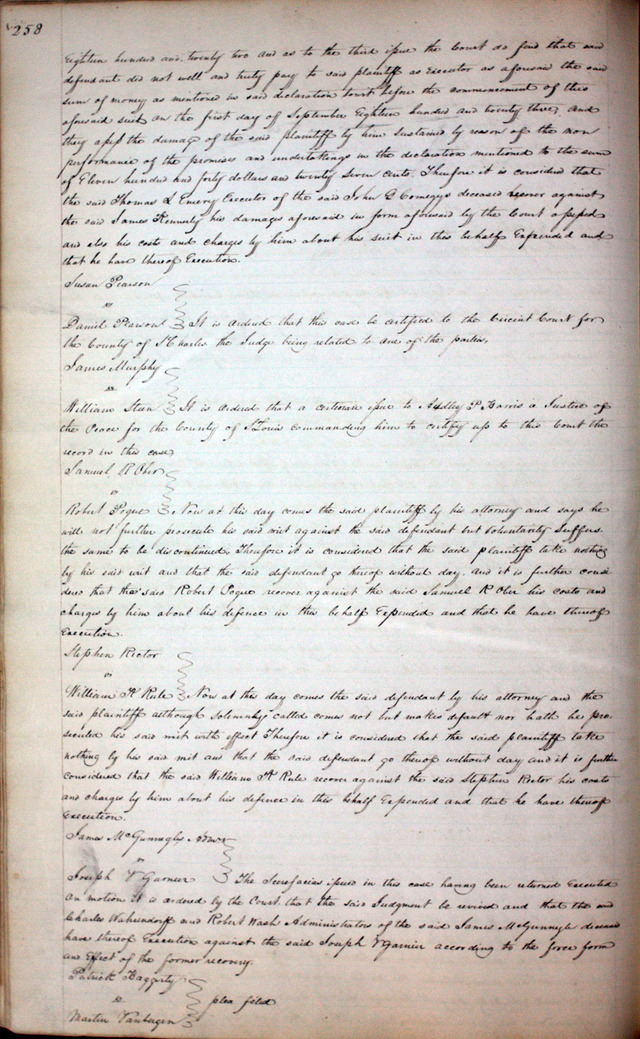 258
Eighteen hundred and twenty two and as to the third issue the Court do find that said
defendant did not well and truly pay to said plaintiff as Executor as aforesaid the said
sum of money as mentioned in said declaration before the commencement of this
aforesaid suit on the first day of September Eighteen hundred and twenty three, and
they assess the damage of the said plaintiff by him sustained by reason of the non
performance of the promises and undertakings in the declaration mentioned to the sum
of Eleven hundred and forty dollars and twenty seven cents. Therefore it is considered that
the said Thomas L Emery Executor of the said John G Comegys deceased recover against
the said James Kennerly his damages aforesaid in form aforesaid by the Court assessed
and also his costs and charges by him about his suit in this behalf Expended and
that he have thereof Execution.
Susan Pearson
vs
Daniel Pearson It is ordered that this case be certified to the Circuit Court for
the County of St Charles the Judge being related to one of the parties,
James Murphy
vs
William Steen It is ordered that a certiorari issue to Audley P Harris a Justice of
the Peace for the County of St Louis commanding him to certify up to this Court the
record in this case
Samuel R Ober
vs
Robert Pogue Now at this day comes the said plaintiff by his attorney and says he
will not further prosecute his said writ against the said defendant but Voluntarily Suffers
the same to be discontinued, Therefore it is considered that the said plaintiff take nothing
by his said writ and that the said defendant go thereof without day, and it is further consi
ders that the said Robert Pogue recover against the said Samuel R Ober his costs and
charges by him about his defence in this behalf Expended and that he have thereof
Execution.
Stephen Rector
vs
William H Rule Now at this day comes the said defendant by his attorney and the
said plaintiff although solemnly called comes not but makes default nor hath he pro
secuted his said writ with effect Therefore it is considered that the said plaintiff take
nothing by his said writ and that the said defendant go thereof without day and it is further
considered that the said William H Rule recover against the said Stephen Rector his costs
and charges by him about his defence in this behalf Expended and that he have thereof
Execution.
James McGunnegle's Admrs
vs
Joseph V Garnier The Scirefacias issued in this case having been returned Executed
On motion it is ordered by the Court that the said Judgment be revived and that the said
Charles Wahrendorff and Robert Wash Administrators of the said James McGunnegle deceased
have thereof Execution against the said Joseph V Garnier according to the force form
and Effect of the former recovery.
Patrick Haggerty
vs
plea filed
Martin Vanbergen